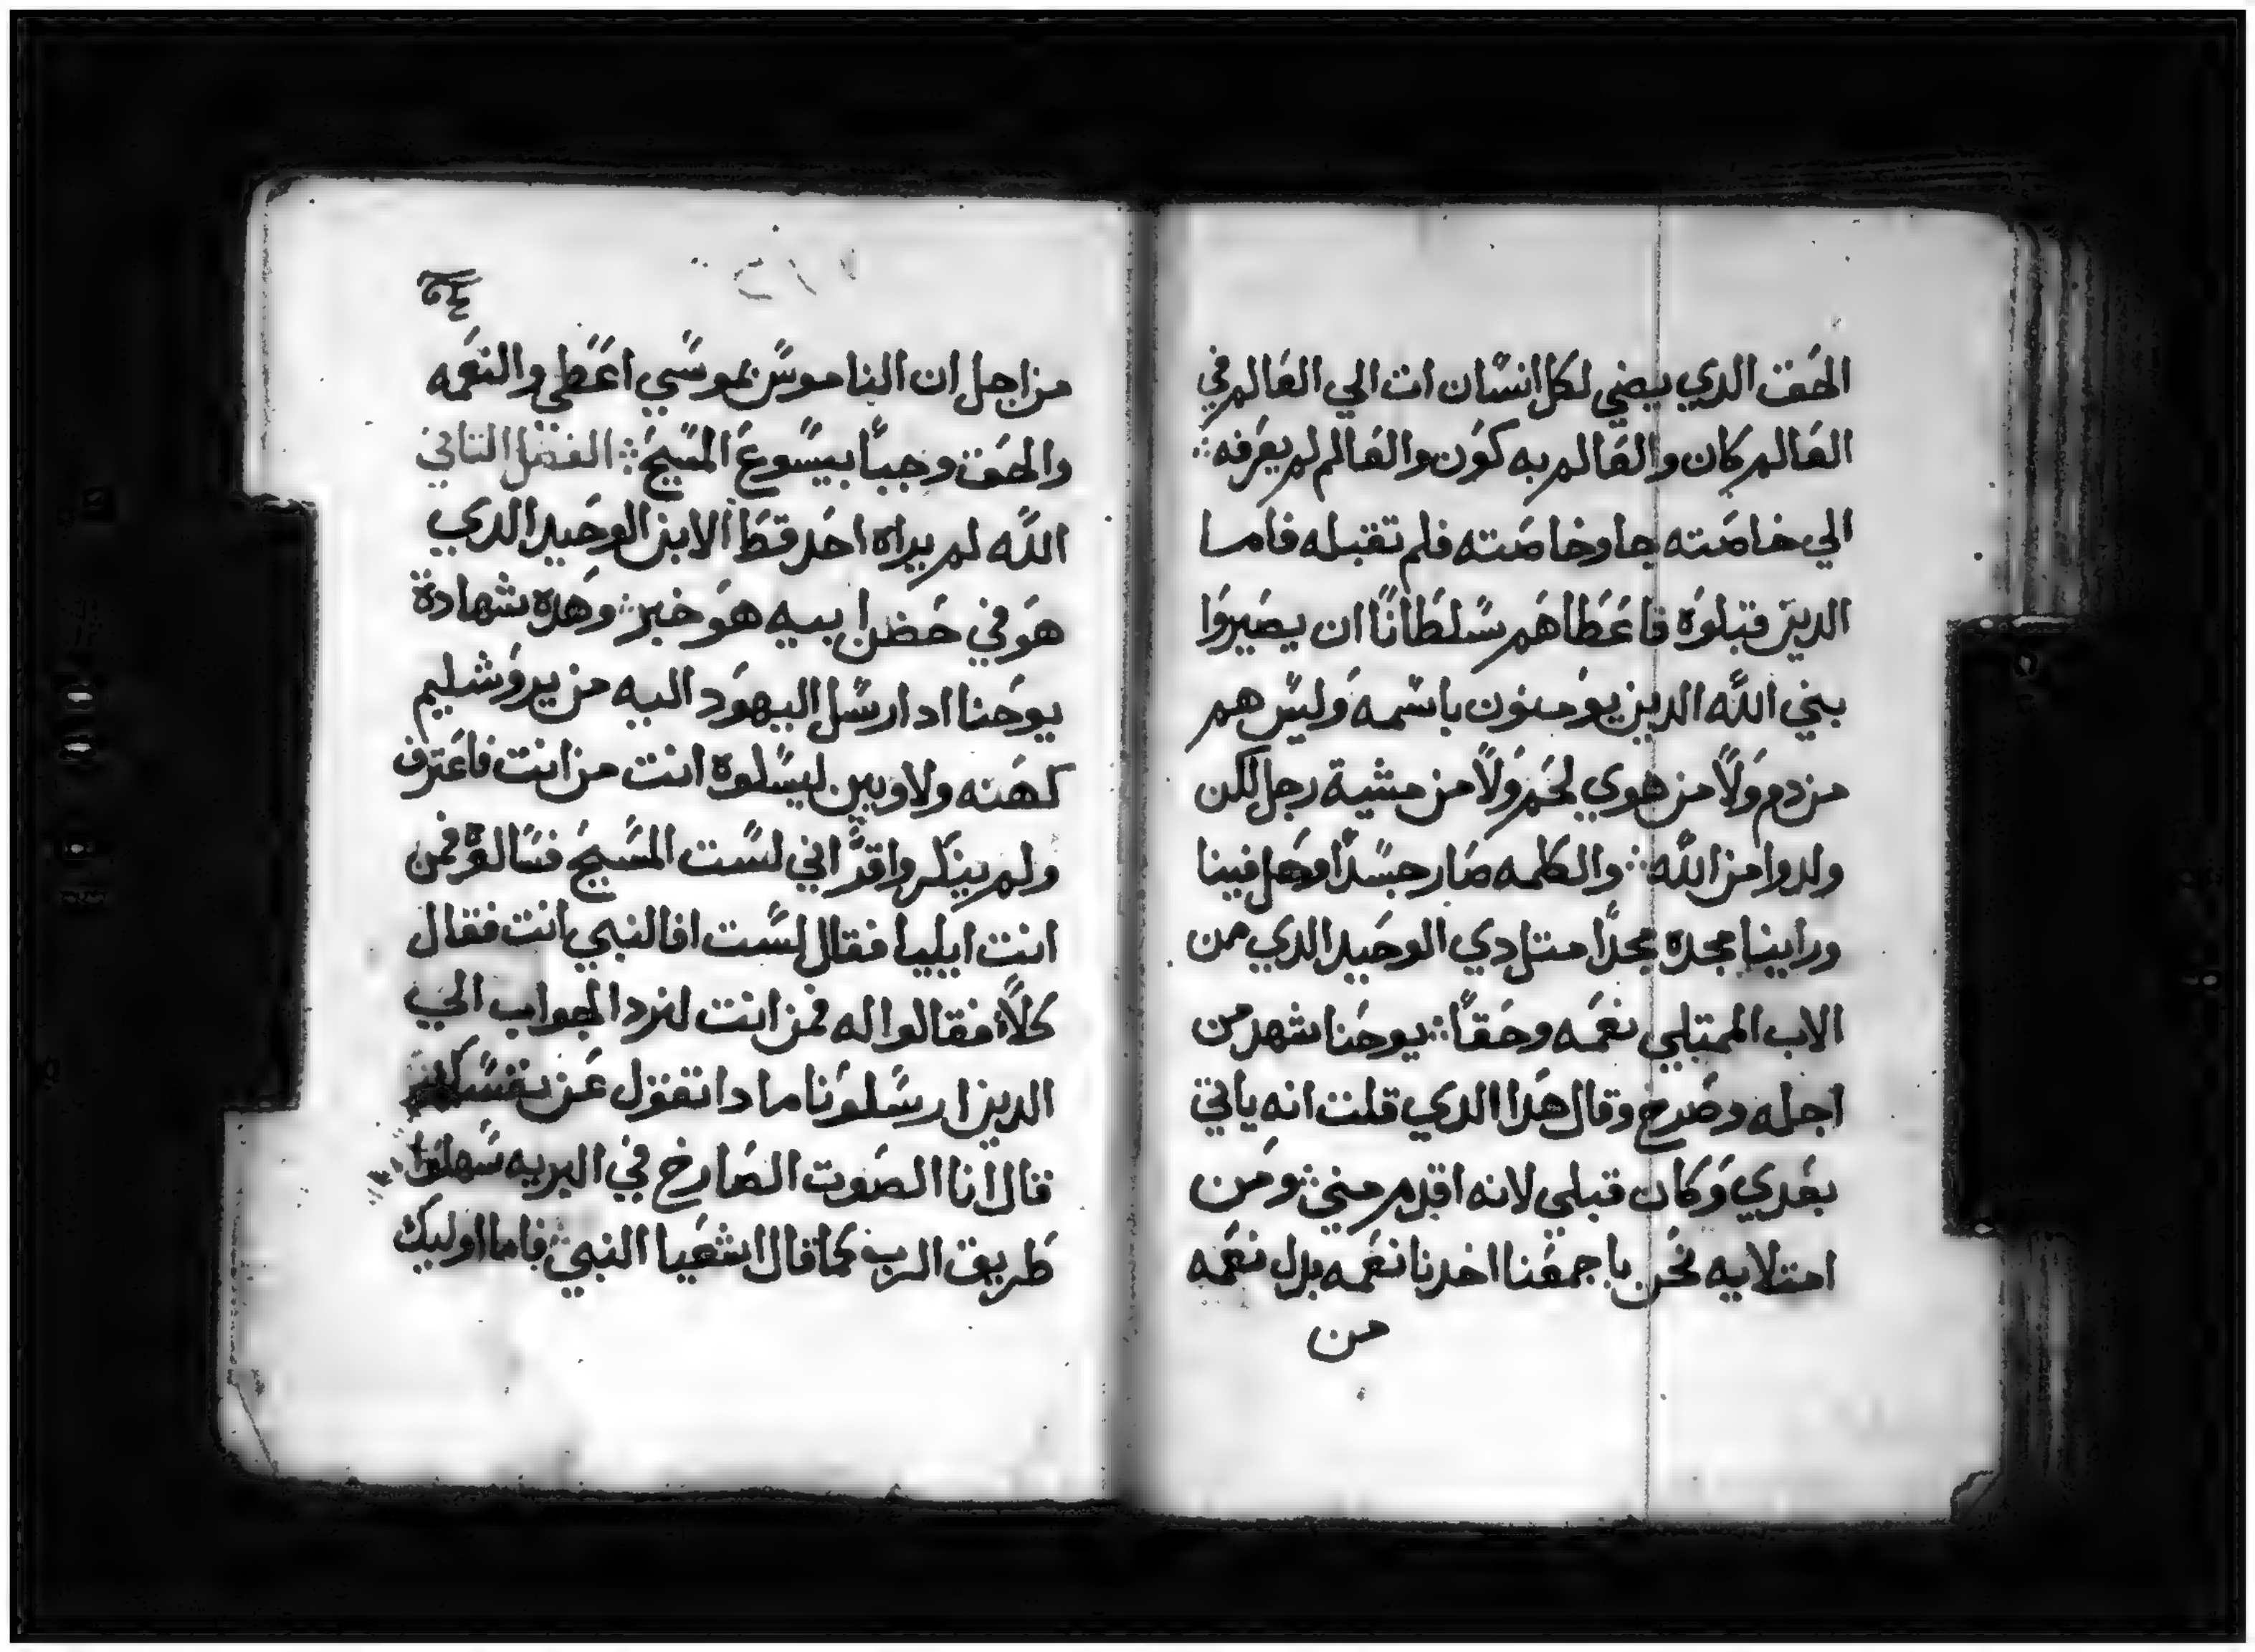 الحق الدي يضي لكل انسان ات الي العالم في
العالم كان والعالم به كون والعالم لم يعرفه
الي خاصته جا وخاصته فلم تقبله فاما
الدين قبلوه فاعطاهم سلطانًا ان يصيروا
بني الله الدين يومنون باسمه وليس هم
من دم ولا من هوي لحم ولا من مشية رجل لكن
ولدوا من الله والكلمه صار جسدًا وحل فينا
وراينا مجده مجدًا متل دي الوحيد الدي من
الاب الممتلي نعمه وحقًا يوحنا شهد من
اجله وصرخ وقال هدا الدي قلت انه ياتي
بعدي وكان قبلي لانه اقدم مني ومن
امتلايه نحن باجمعنا اخدنا نعمه بدل نعمه
من
من اجل ان الناموس بموسي اعطي والنعمه
والحق وجبا بيسوع المسيح الفصل التاني
الله لم يراه احد قط الابن الوحيد الدي
هو في حضن ابيه هو خبر وهده شهادة
يوحنا اد ارسل اليهود اليه من يروشليم
كهنه ولاويين ليسلوه انت من انت فاعترف
ولم ينكر واقر اني لست المسيح فسالوه فمن
انت ايليا فقال لست افالنبي انت فقال
كلا فقالوا له فمن انت لنرد الجواب الي
الدين ارسلونا مادا تقول عن نفسك
قال انا الصوت الصارخ في البريه سهلوا
طريق الرب كما قال اشعيا النبي فاما اوليك